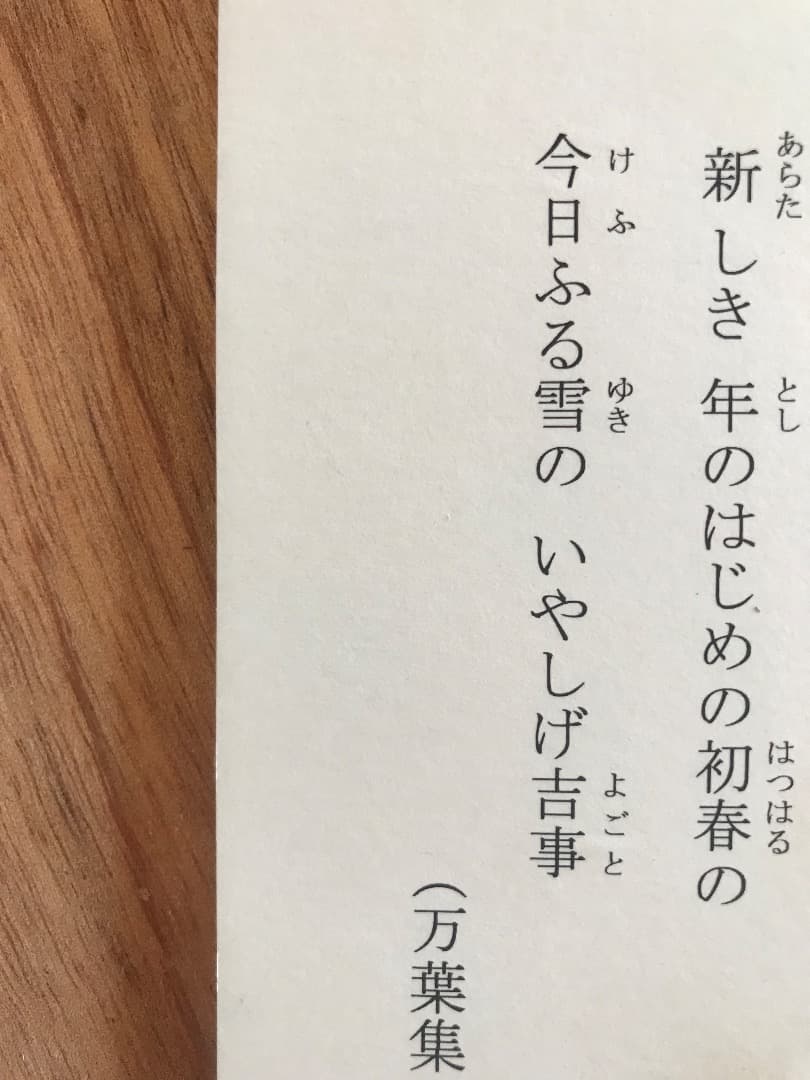 新しき 年のはじめの初春の
あらた とし はつはる
今日ふる雪の いやしげ吉事
けふ ゆき よごと
(万葉集